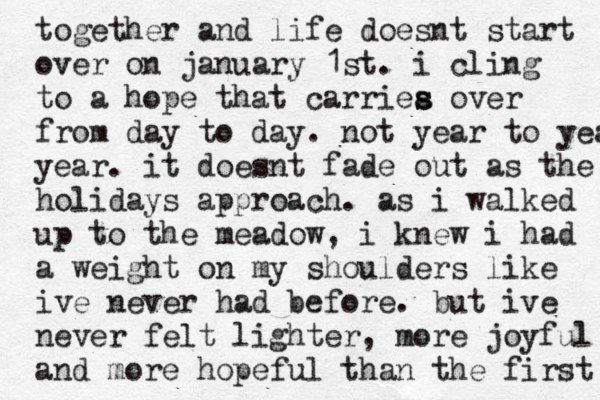 together and life doesnt start
over on january 1st. i cling
to a hope that carries over
from day to day. not year to yea
year. it doesnt fade out as the
holidays approach. as i walked
up to the meadow, i knew i had
a weight on my shoulders like
ive never had before. but ive
never felt lighter, more joyful
and more hopeful than the first